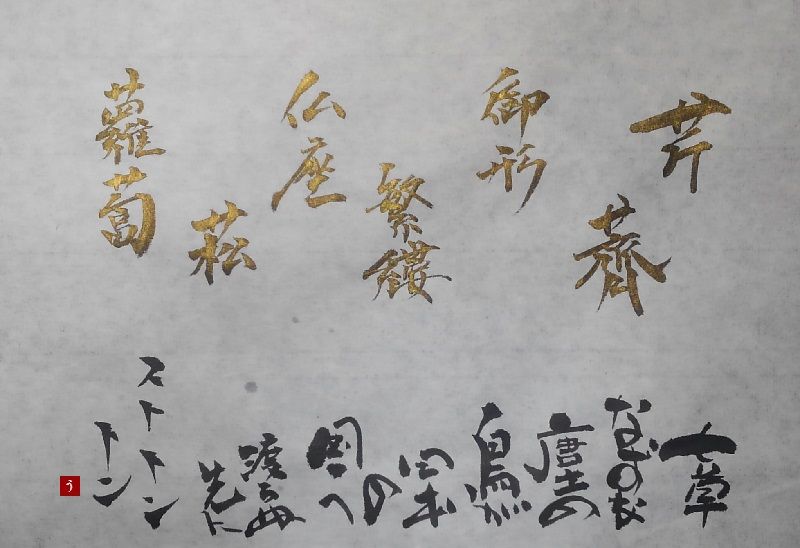 芹
薺
御形
繁縷
仏座
菘
蘿蔔
七草
なずな
唐土の
鳥が
日本
の
国へ
渡らぬ
先に
ストトン
トン
う